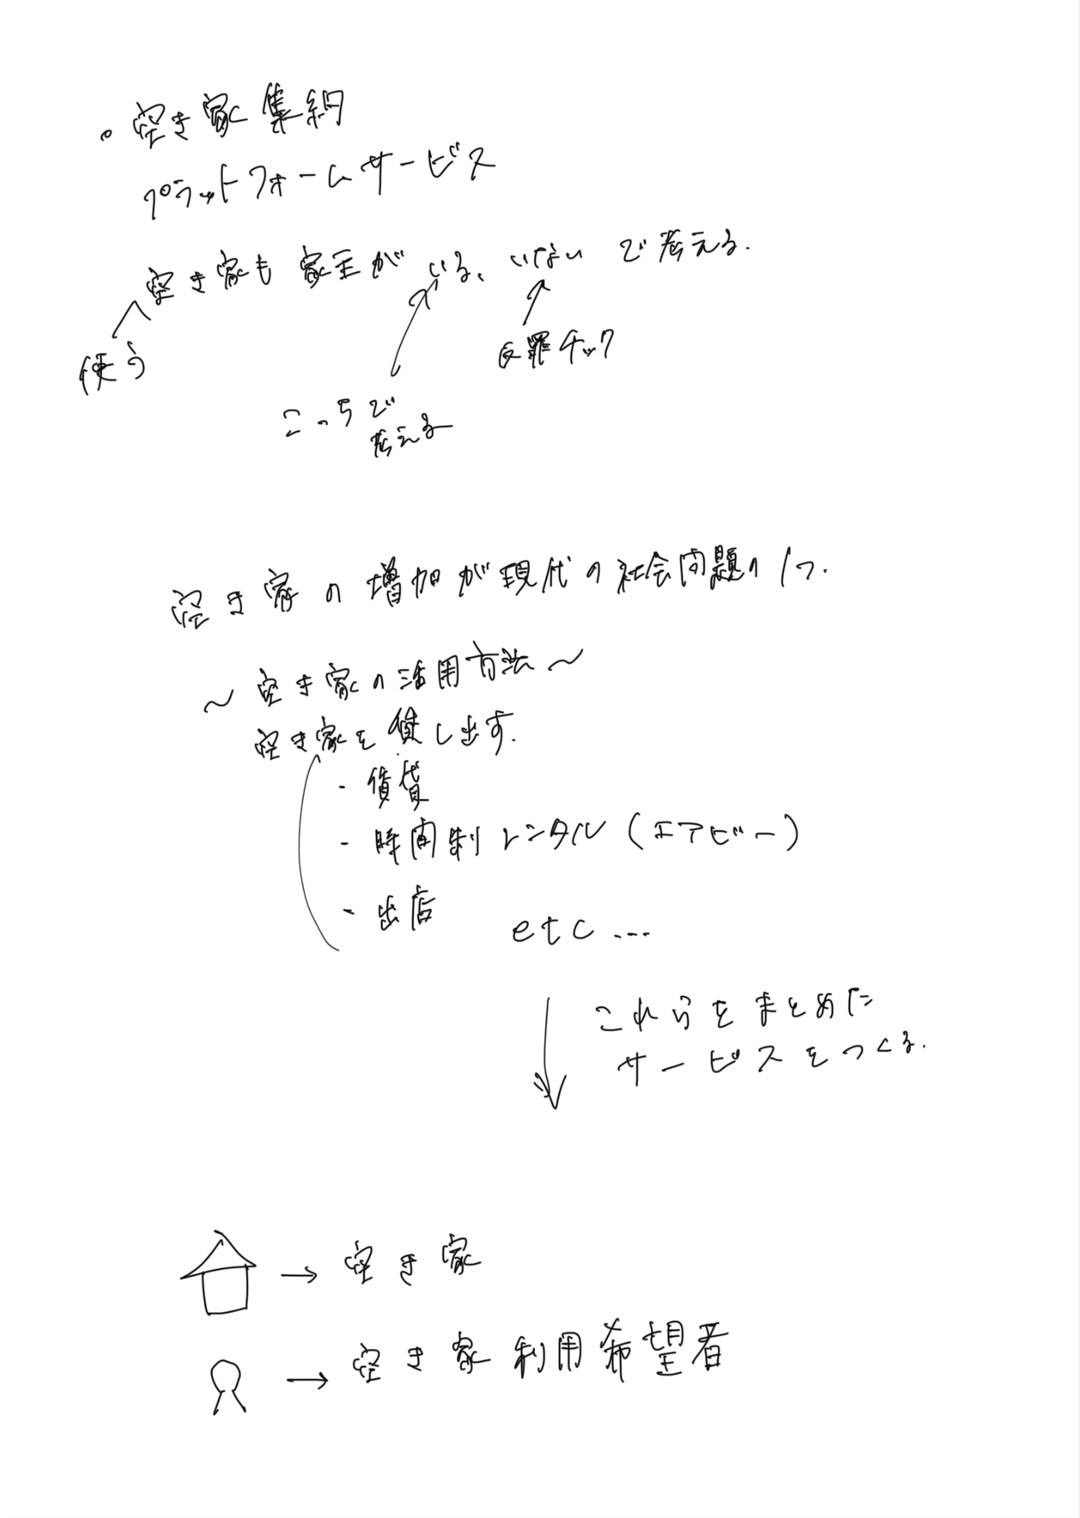 。空き家集約
プラットフォームサービス
空き家も家主がいる、いないで考える.
使う
犯罪チック
こっちで
考える
空き家の増加が現代の社会問題の1つ.
〜空き家の活用方法〜
空き家を貸し出す.
・賃貸
・時間制レンタル(エアビー)
・出店
etc...
これらをまとめた
サービスをつくる.
→空き家
→空き家利用希望者